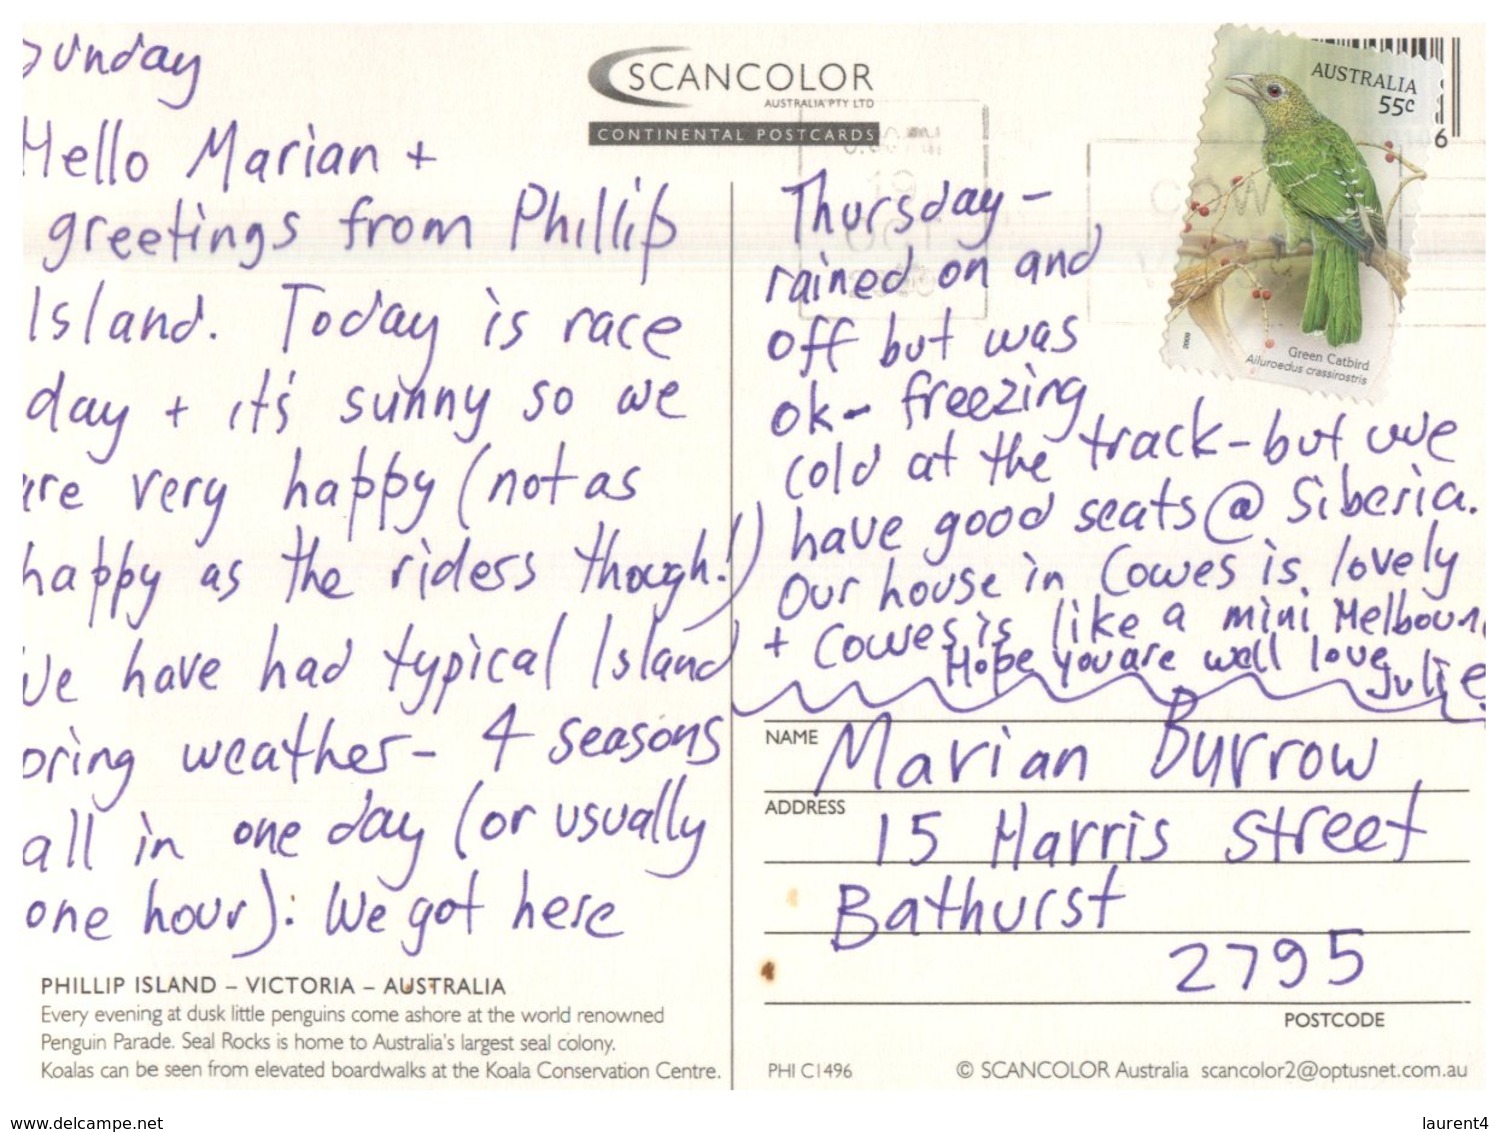 Sunday
Hello Marian +
greetings from Phillip
Island. Today is race
day + it's sunny so we
are very happy (not as
happy as the riders though!)
We have had typical Island
spring weather - 4 seasons
all in one day (or usually
one hour): We got here
PHILLIP ISLAND – VICTORIA – AUSTRALIA
Every evening at dusk little penguins come ashore at the world renowned
Penguin Parade. Seal Rocks is home to Australia's largest seal colony.
Koalas can be seen from elevated boardwalks at the Koala Conservation Centre.
SCANCOLOR
AUSTRALIA PTY LTD
CONTINENTAL POSTCARDS
AUSTRALIA
55c
6
Green Catbird
Ailuroedus crassirostris
2009
19
OCT
Thursday -
rained on and
off but was
ok - freezing
cold at the track - but we
have good seats @ Siberia.
Our house in Cowes is lovely
+ Cowes is like a mini Melbourn
Hope you are well love
Julie
NAME Marian Burrow
ADDRESS 15 Harris Street
Bathurst
2795
POSTCODE
PHI C1496 © SCANCOLOR Australia scancolor2@optusnet.com.au
www.delcampe.net laurent4